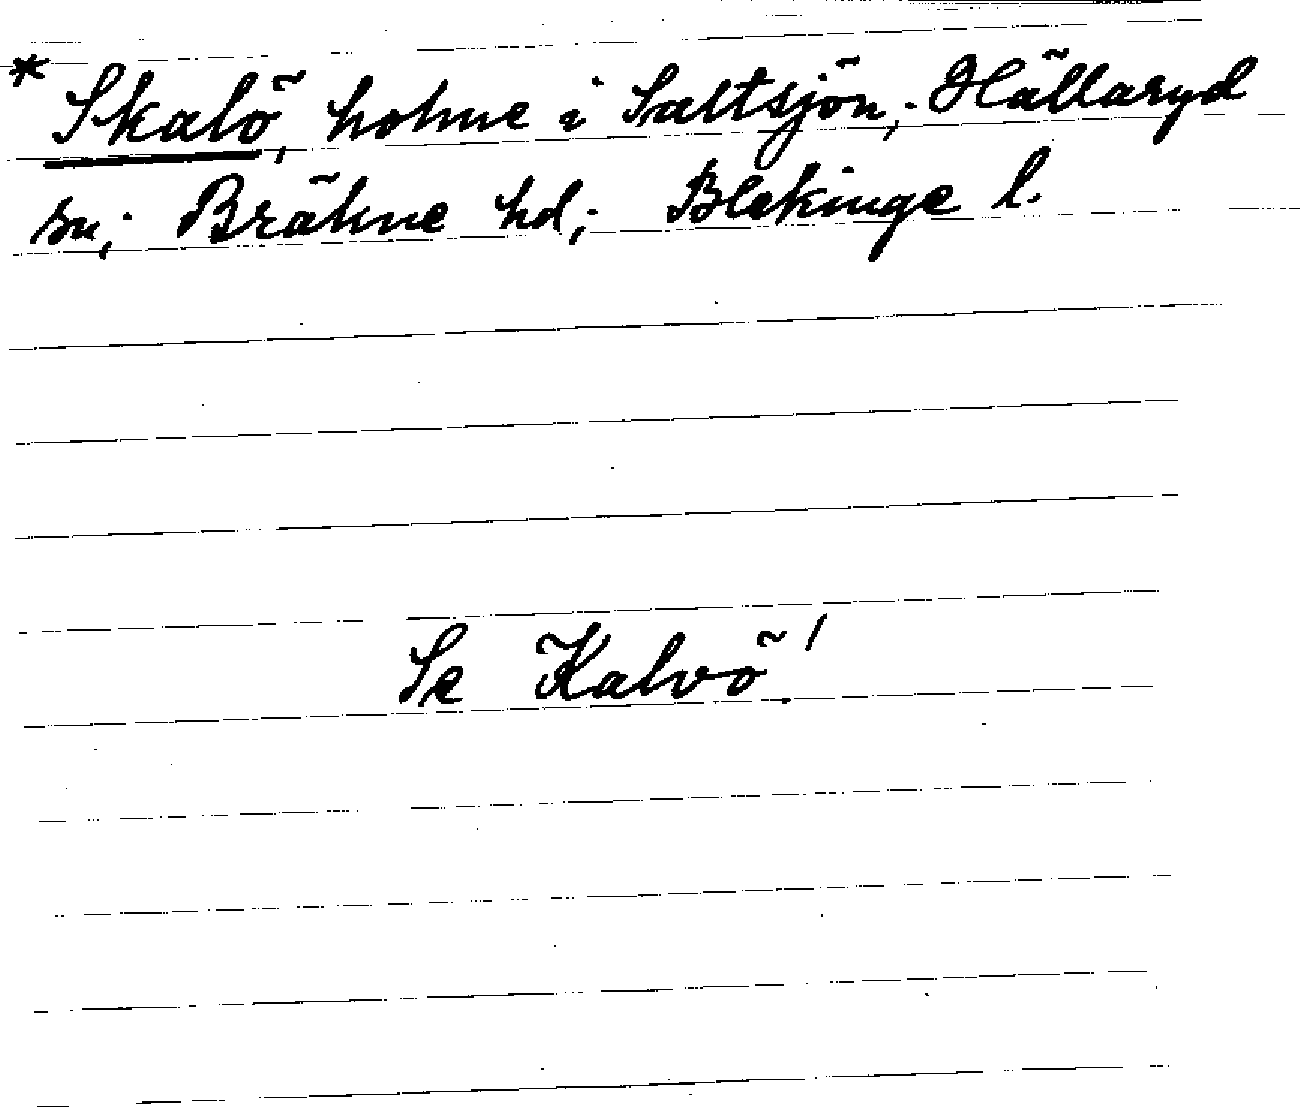 * Skalö, holme i Saltsjön; Hällaryd
sn; Bräkne hd; Blekinge l.
Se Kalvö!